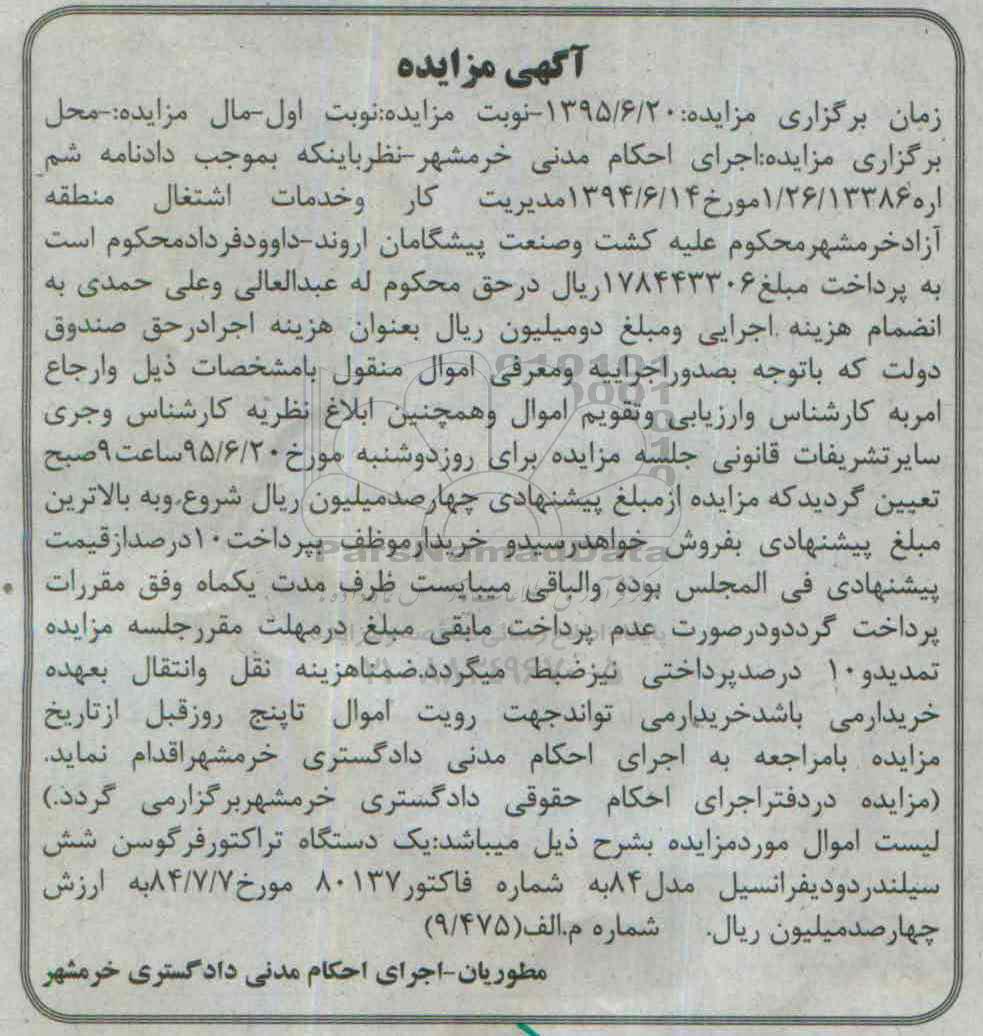 آگهی مزایده
زمان برگزاری مزایده:۱۳۹۵/۶/۲۰-نوبت مزایده:نوبت اول-مال مزایده:-محل
برگزاری مزایده:اجرای احکام مدنی خرمشهر-نظرباینکه بموجب دادنامه شم
اره۱/۲۶/۱۳۳۸۶مورخ۱۳۹۴/۶/۱۴مدیریت کار وخدمات اشتغال منطقه
آزادخرمشهرمحکوم علیه کشت وصنعت پیشگامان اروند-داوودفردادمحکوم است
به پرداخت مبلغ۱۷۸۴۴۳۳۰۶ریال درحق محکوم له عبدالعالی وعلی حمدی به
انضمام هزینه اجرایی ومبلغ دومیلیون ریال بعنوان هزینه اجرادرحق صندوق
دولت که باتوجه بصدوراجراییه ومعرفی اموال منقول بامشخصات ذیل وارجاع
امربه کارشناس وارزیابی وتقویم اموال وهمچنین ابلاغ نظریه کارشناس وجری
سایرتشریفات قانونی جلسه مزایده برای روزدوشنبه مورخ۹۵/۶/۲۰ساعت۹صبح
تعیین گردیدکه مزایده ازمبلغ پیشنهادی چهارصدمیلیون ریال شروع.وبه بالاترین
مبلغ پیشنهادی بفروش خواهدرسیدو خریدارموظف بپرداخت۱۰درصدازقیمت
پیشنهادی فی المجلس بوده والباقی میبایست ظرف مدت یکماه وفق مقررات
پرداخت گرددودرصورت عدم پرداخت مابقی مبلغ درمهلت مقررجلسه مزایده
تمدیدو۱۰ درصدپرداختی نیزضبط میگردد.ضمناهزینه نقل وانتقال بعهده
خریدارمی باشدخریدارمی تواندجهت رویت اموال تاپنج روزقبل ازتاریخ
مزایده بامراجعه به اجرای احکام مدنی دادگستری خرمشهراقدام نماید.
(مزایده دردفتراجرای احکام حقوقی دادگستری خرمشهربرگزارمی گردد.)
لیست اموال موردمزایده بشرح ذیل میباشد:یک دستگاه تراکتورفرگوسن شش
سیلندردودیفرانسیل مدل۸۴به شماره فاکتور۸۰۱۳۷ مورخ۸۴/۷/۷به ارزش
چهارصدمیلیون ریال. شماره م.الف(۹/۴۷۵)
مطوریان-اجرای احکام مدنی دادگستری خرمشهر
ParsNamadData